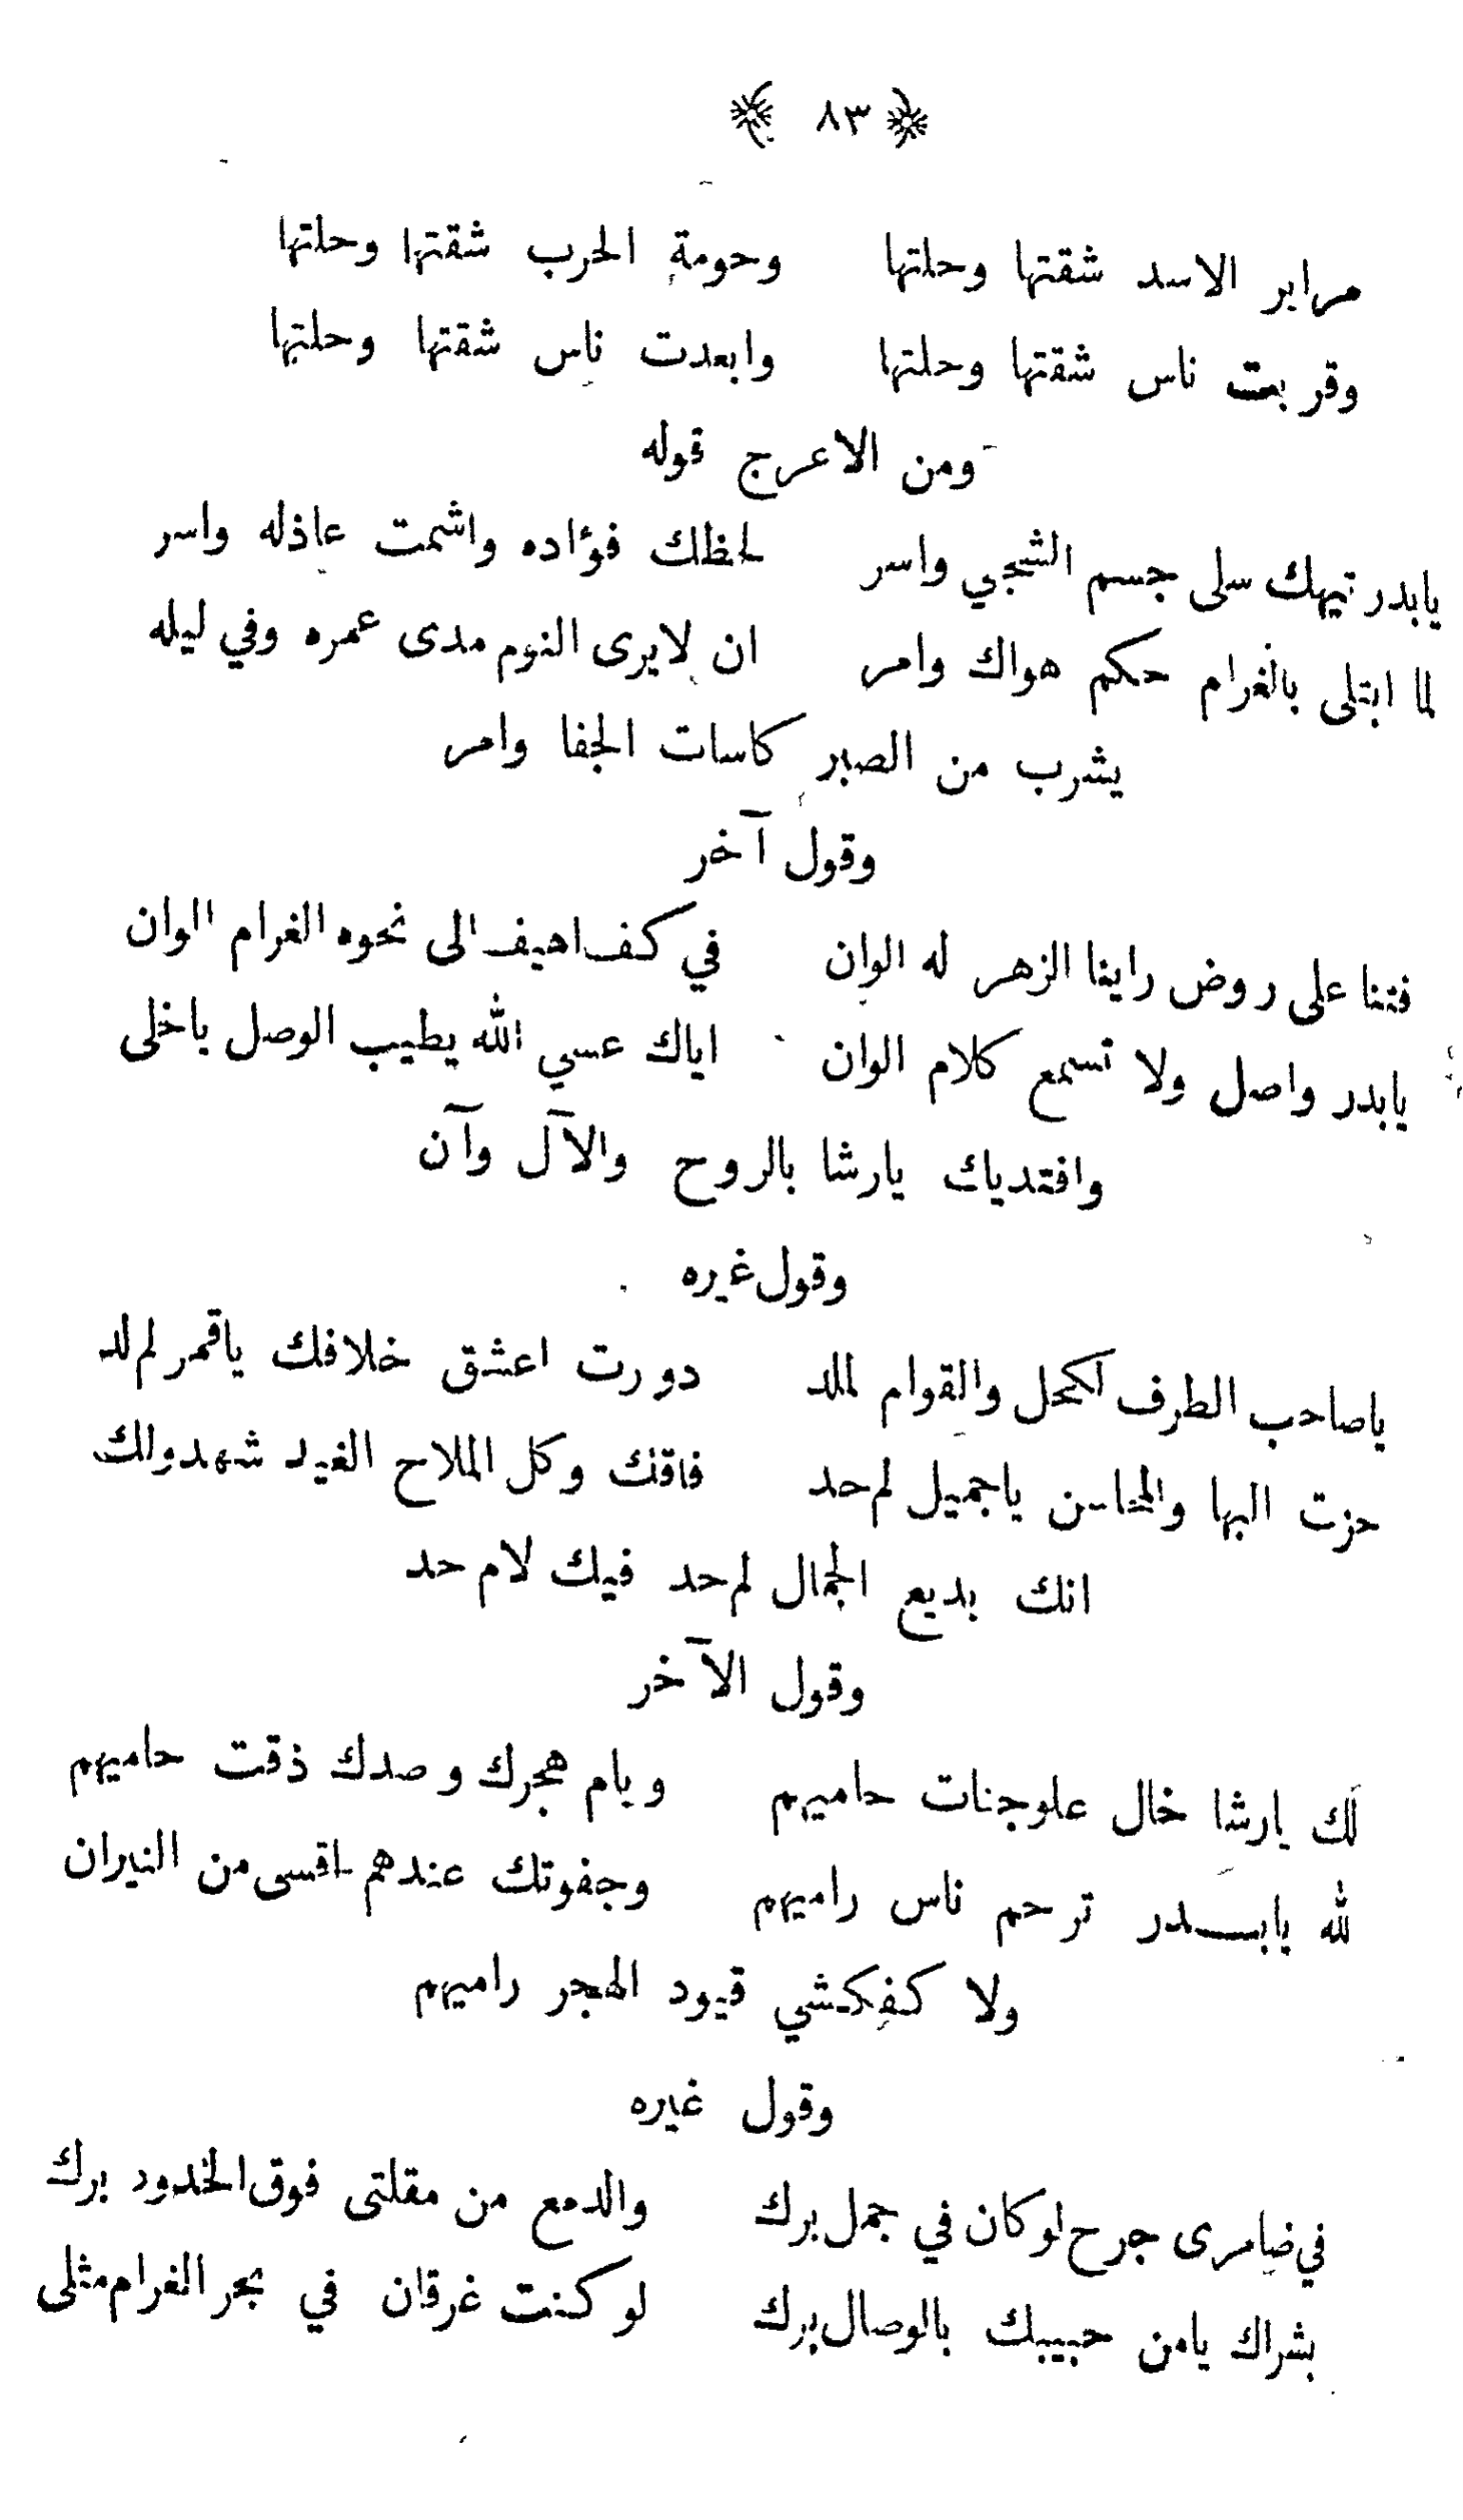 ٨٣
مراير الاسد شقتها وحلتها وحومة الحرب شقتها وحلتها
وقربت ناس شقتها وحلتها وابعدت ناس شقتها وحلتها
ومن الاعرج قوله
يابدر تيهك سلى جسم الشجي واسر لحظلك فؤاده واشمت عاذله واسر
لما ابتلى بالغرام حكم هواك وامر ان لايرى النوم مدى عمره وفي ليله
يشرب من الصبر كاسات الجفا وامر
وقول آخر
فتنا على روض راينا الزهر له الوان في كف اهيف الى نحوه الغرام الوان
يابدر واصل ولا تسمع كلام الوان اياك عسي الله يطيب الوصل ياخلى
وافتديك يارشا بالروح والآل وآن
وقول غيره
ياصاحب الطرف لكحل والقوام لملد دورت اعشق خلافك ياقمر لم لد
حزت البها والمحاسن ياجميل لم حد فاقك وكل الملاح الغيد شهدولك
انك بديع الجمال لم حد فيك لام حد
وقول الآخر
لك يارشا خال علوجنات حاميهم ويام هجرك وصدك ذقت حاميهم
لله يابدر ترحم ناس راميهم وجفوتك عندهم اقسى من النيران
ولا كفكشي قيود الهجر راميهم
وقول غيره
في ضامرى جرح لو كان في جمل برك والدمع من مقلتى فوق الخدود برك
بشراك يامن حبيبك بالوصال برك لو كنت غرقان في بحر الغرام مثلى